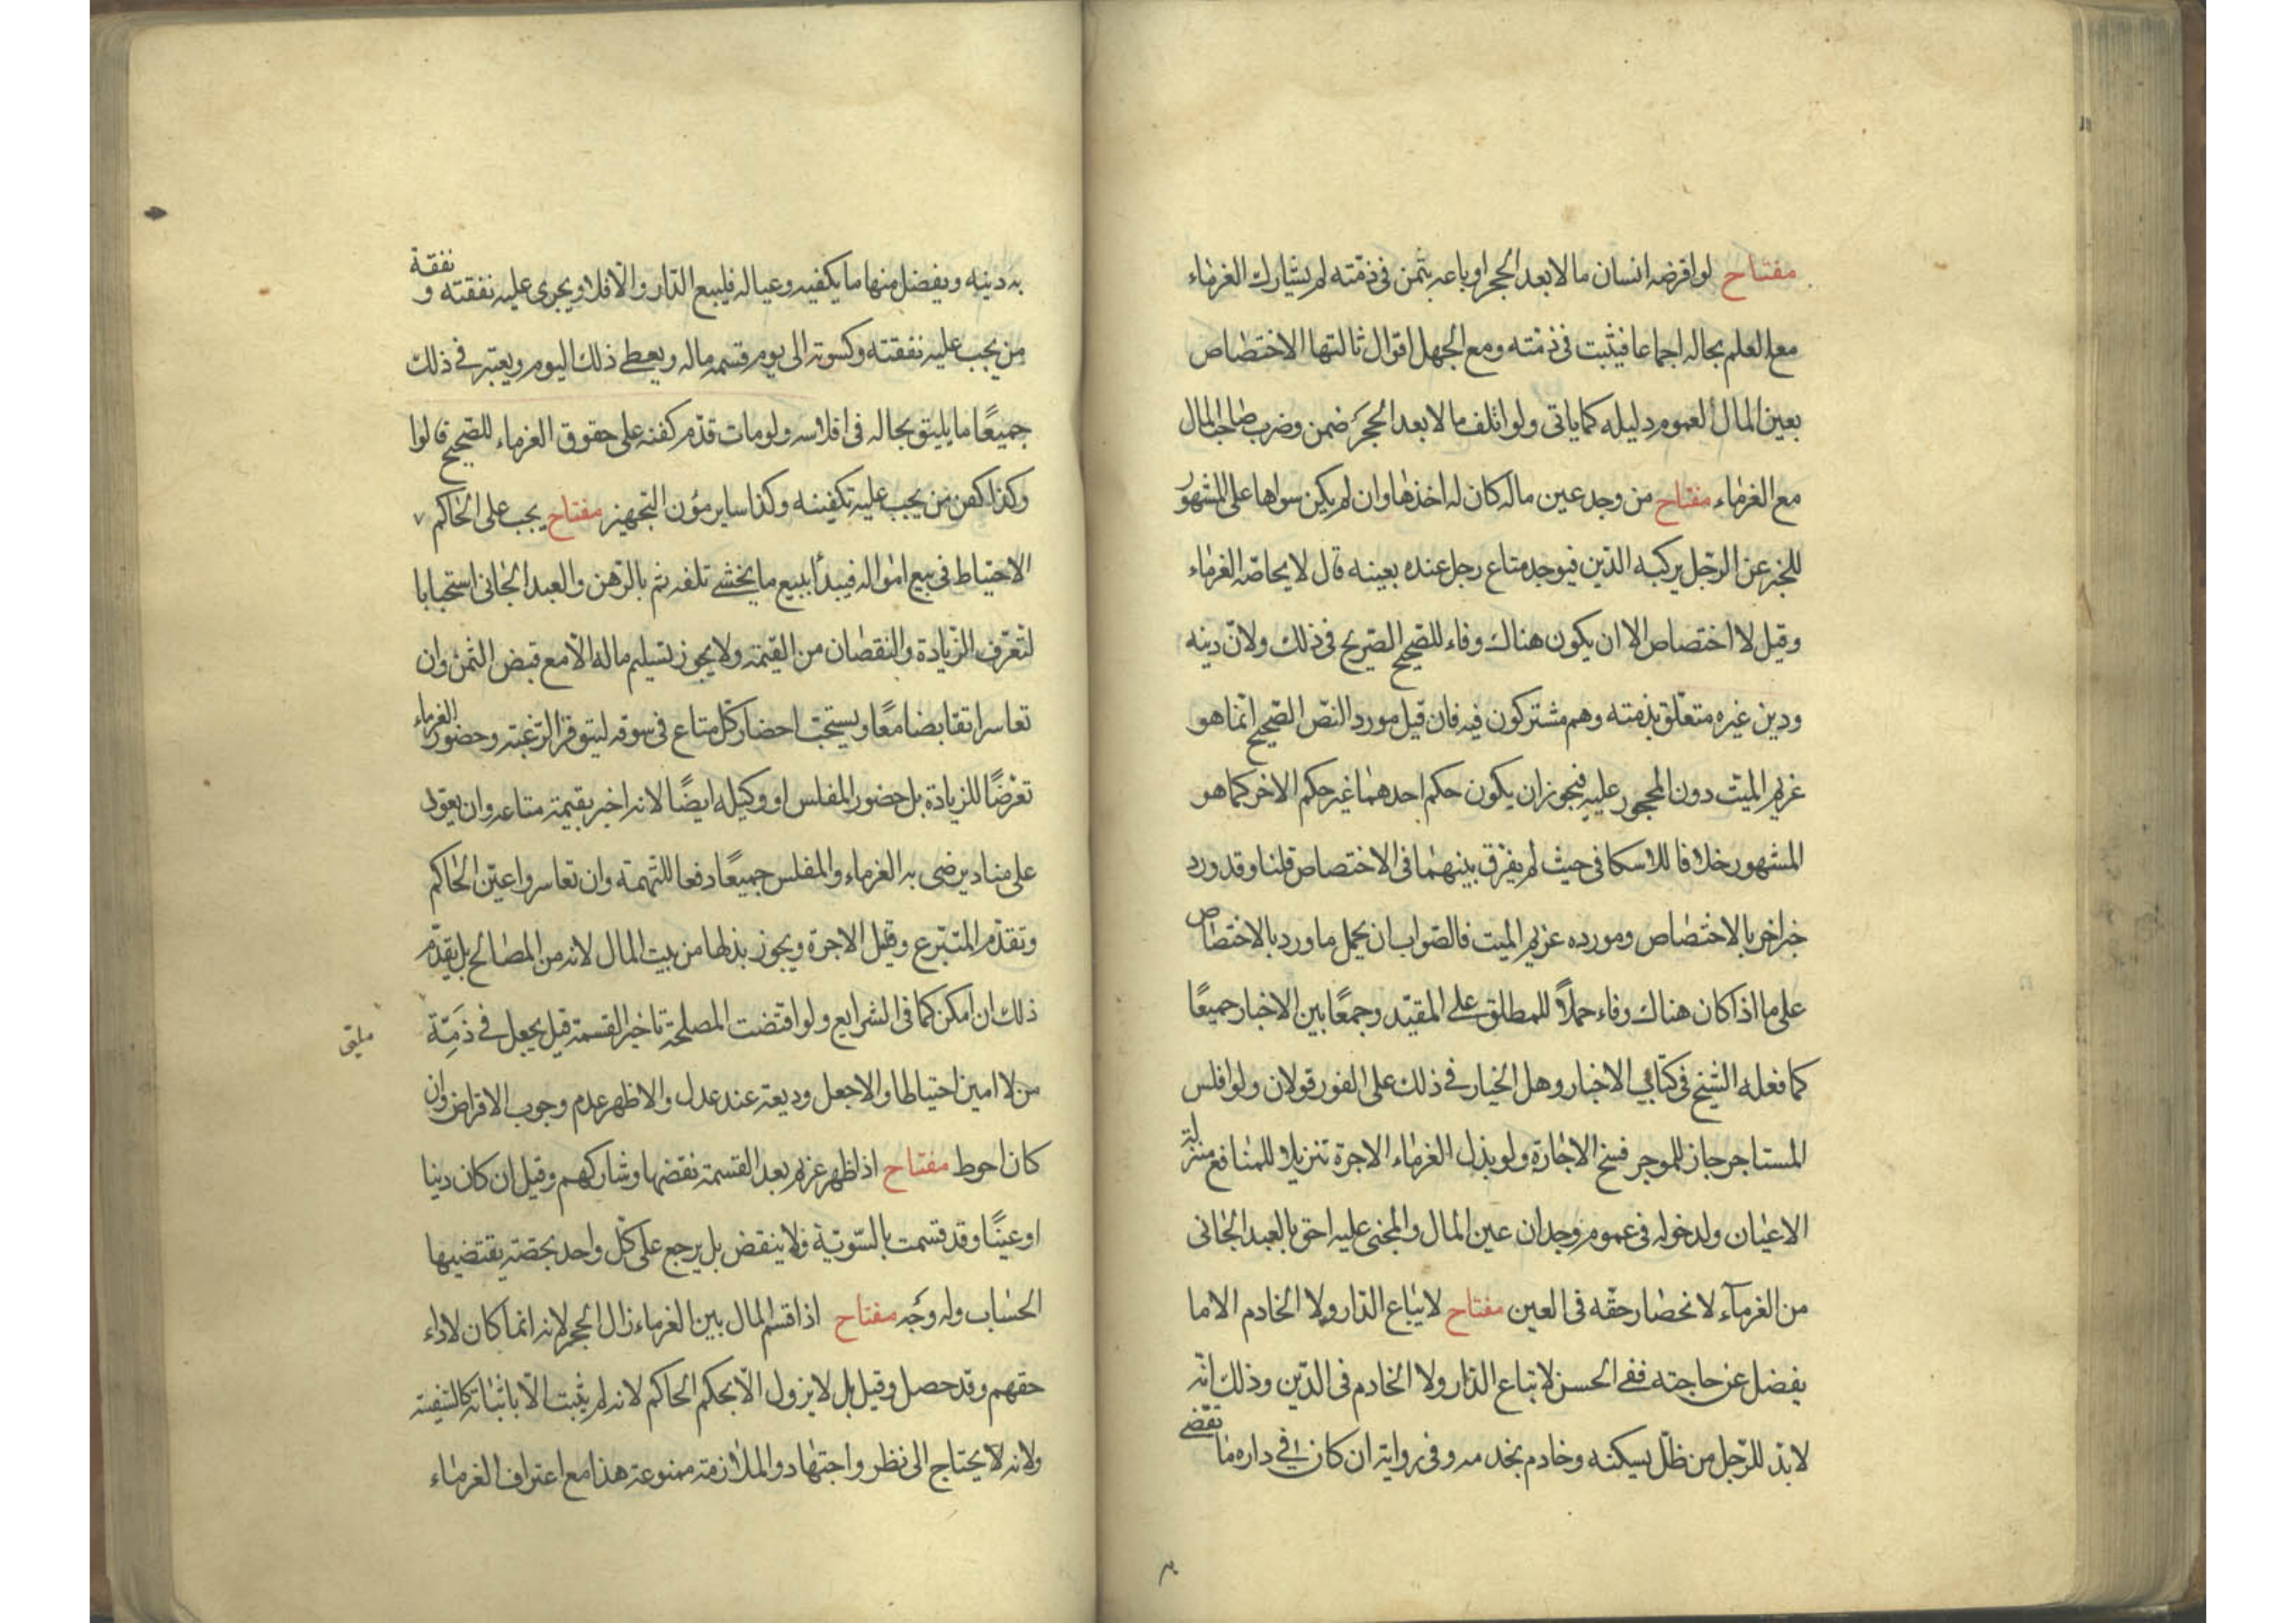 مفتاح لو اقرضه انسان مالا بعد الحجر او باعه بثمن فى ذمّته لم يشارك الغرماء
مع العلم بحاله اجماعا فيثبت فى ذمّته ومع الجهل اقوال ثالثها الاختصاص
بعين المال لعموم دليله كما ياتى ولو اتلف مالا بعد الحجر ضمن وضرب صاحب المال
مع الغرماء مفتاح من وجد عين ماله كان له اخذها وان لم يكن سواها على المشهور
للخبر عن الرّجل يركبه الدّين فيوجد متاع رجل عنده بعينه قال لا يحاصّه الغرماء
وقيل لا اختصاص الا ان يكون هناك وفاء للصّحيح الصّريح فى ذلك ولانّ دينه
ودين غيره متعلّق بذمته وهم مشتركون فيه فان قيل مورد النصّ الصّحيح انّما هو
غريم الميّت دون المحجور عليه فيجوز ان يكون حكم احدهما غير حكم الاخر كما هو
المشهور خلافا للاسكافى حيث لم يفرّق بينهما فى الاختصاص قلنا وقد ورد
خبر اخر بالاختصاص ومورده غريم الميت فالصّواب ان يحمل ما ورد بالاختصاص
على ما اذا كان هناك وفاء حملاً للمطلق على المقيّد وجمعًا بين الاخبار جميعًا
كما فعله الشّيخ فى كتابى الاخبار وهل الخيار فى ذلك على الفور قولان ولو افلس
المستاجر جاز للموجر فسخ الاجارة ولو بذل الغرماء الاجرة تنزيلا للمنافع منزلة
الاعيان ولدخوله فى عموم وجدان عين المال والمجنى عليه احق بالعبد الجانى
من الغرمآء لانحصار حقّه فى العين مفتاح لا يباع الدّار ولا الخادم الا ما
يفضل عن حاجته ففى الحسن لا تباع الدّار ولا الخادم فى الدّين وذلك انّه
لا بدّ للرّجل من ظلّ يسكنه وخادم يخدمه وفى رواية ان كان فى داره ما يقضى
به دينه ويفضل منها ما يكفيه وعياله فليبع الدّار والّا فلا ويجرى عليه نفقته و نفقة
من يجب عليه نفقته وكسوته الى يوم قسمة ماله ويعطى ذلك اليوم ويعتبر فى ذلك
جميعًا ما يليق بحاله فى افلاسه ولو مات قدّم كفنه على حقوق الغرماء للصّحيح قالوا
وكذا كفن من يجب عليه تكفينه وكذا ساير مؤن التّجهيز مفتاح يجب على الحاكم
الاحتياط فى بيع امواله فيبدأ ببيع ما يخشى تلفه ثم بالرّهن والعبد الجانى استحبابا
لتعرّف الزّيادة والنقصان من القيمة ولا يجوز تسليم ماله الّا مع قبض الثّمن وان
تعاسرا تقابضا معًا ويستحبّ احضار كلّ متاع فى سوقه ليتوفّر الرّغبة وحضور الغرماء
تعرّضًا للزيادة بل حضور المفلس او وكيله ايضًا لانه اخبر بقيمة متاعه وان يعوّل
على مناد يرضى به الغرماء والمفلس جميعًا دفعا للتّهمة وان تعاسروا عيّن الحاكم
وتقدّم المتبرّع وقيل الاجرة ويجوز بذلها من بيت المال لانه من المصالح بل يقدّم
ذلك ان امكن كما فى الشرايع ولو اقتضت المصلحة تاخير القسمة قيل يجعل فى ذمّة
ملىّ
من لا امين احتياطا والا جعل وديعة عند عدل والاظهر عدم وجوب الاقراض وان
كان احوط مفتاح اذا ظهر غريم بعد القسمة نقضها وشاركهم وقيل ان كان دينا
او عينًا وقد قسمت بالسّويّة فلا ينقض بل يرجع على كلّ واحد بحصّة يقتضيها
الحساب وله وجه مفتاح اذا قسم المال بين الغرماء زال الحجر لانه انّما كان لاداء
حقهم وقد حصل وقيل بل لا يزول الّا بحكم الحاكم لانه لم يثبت الّا باثباته كالسّفيه
ولانه لا يحتاج الى نظر واجتهاد والملازمة ممنوعة هذا مع اعتراف الغرماء